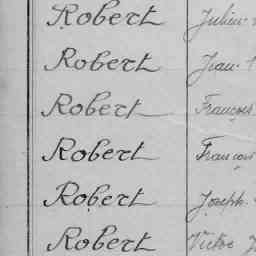 Robert Julien
Robert Jean
Robert François
Robert François
Robert Joseph
Robert Victor